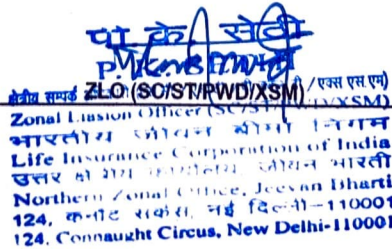 पी के सेठी
P.
क्षेत्रीय सम्पर्क ZLO (SC/ST/PWD/XSM) / एक्स एस एम)
Zonal Liasion Officer (SC/ST/PWD/XSM)
भारतीय जीवन बीमा निगम
Life Insurance Corporation of India
उत्तर क्षेत्रीय कार्यालय, जीवन भारती
Northern Zonal Office, Jeevan Bharti
124, कनॉट सर्कस, नई दिल्ली-110001
124, Connaught Circus, New Delhi-110001